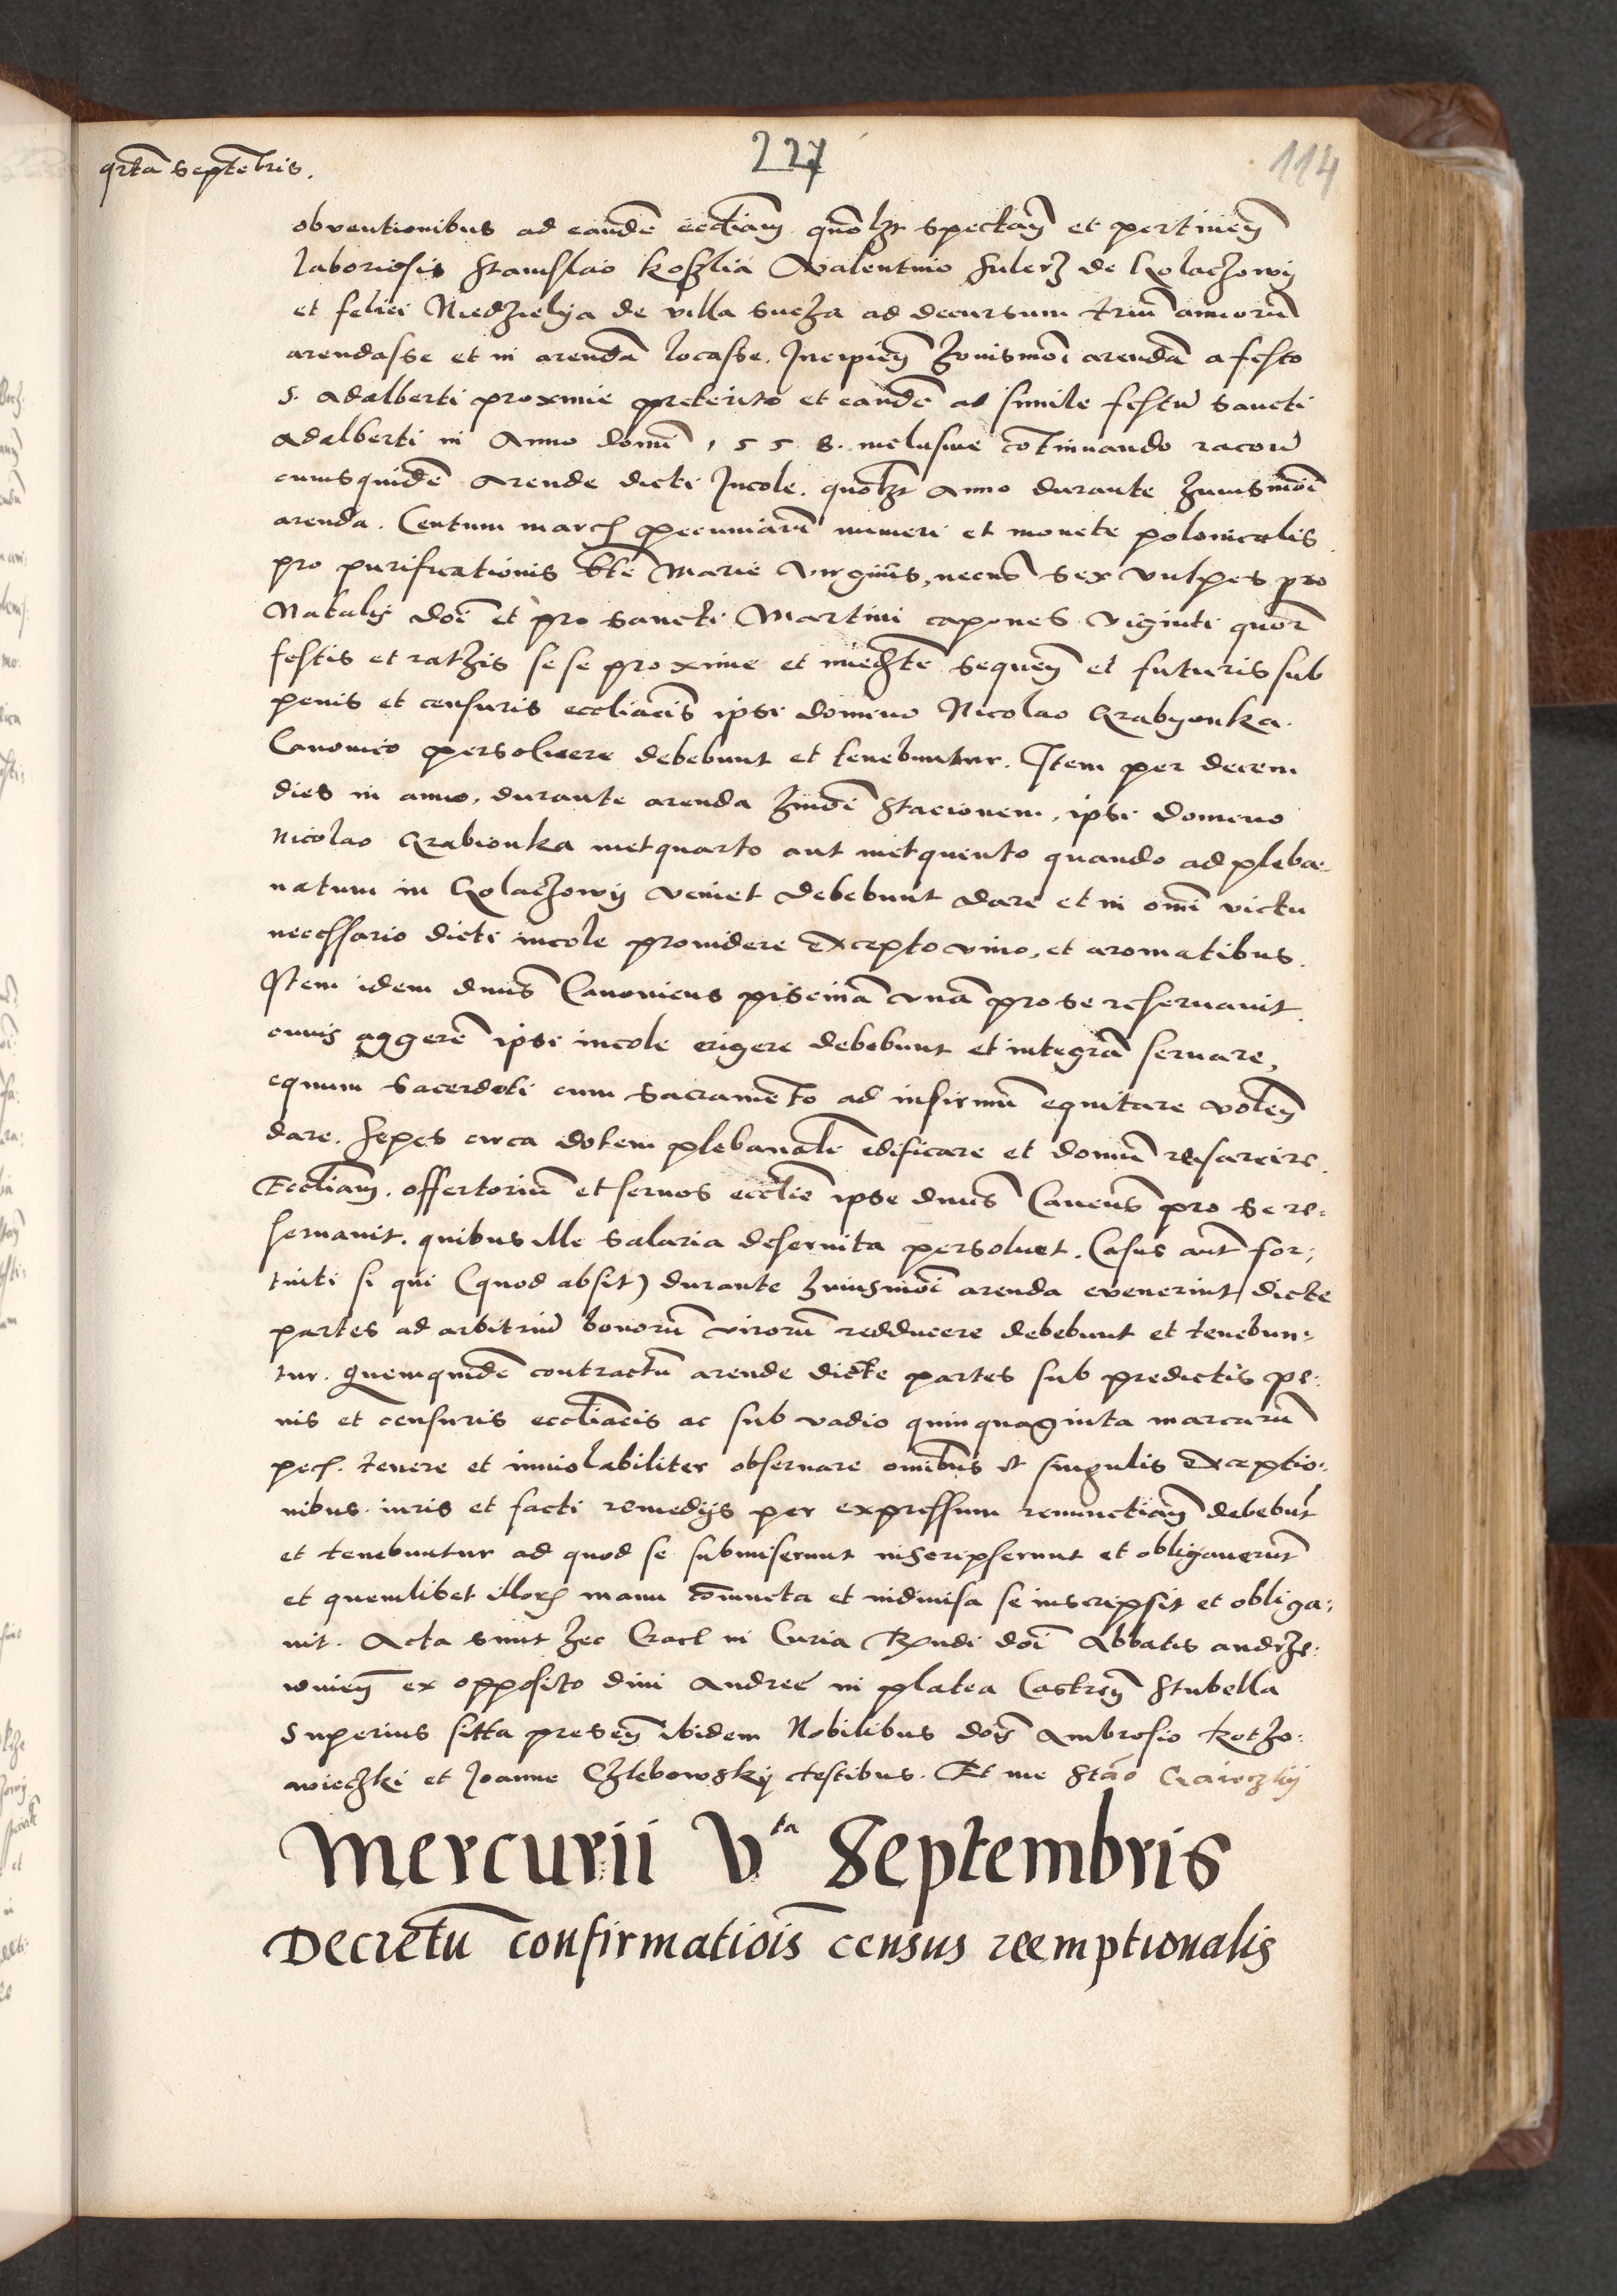 qrtā septēbris.
227
114
obventionibus ad eandē eccliam quōlzt spectan̄ et pertinen̄
laboriosis Stanislao Koszlia Valentino Sulerz de Kolaczowij
et felici Niedzielija de villa sucza ad decursum triū annorū
arendasse et in arendā locasse. Incipien̄ huiusmōi arendā a festo
S. Adalberti proxime preterito et eandē ad simile festū sancti
Adalberti in Anno domī 1558. inclusive cōtinuando racōe
cuiusquidē Arende dicti Incole. quolzt Anno durante huiusmōi
arenda. Centum marcȝ pecuniarū numeri et monete polonicalis
pro purificationis bte Marie Virginis, necnō sex vulpes pro
Natalis doī et pro sancti Martini capones viginti quor̄
festis et rathis se se proxime et īmediate sequen̄ et futuris sub
penis et censuris eccliacis ipsi domino Nicolao Grabyonka.
Canonico persoluere debebunt et tenebuntur. Item per decem
dies in anno, durante arenda huiōi stacionem, ipsi domino
Nicolao Grabionka metquarto aut metquinto quando ad pleba-
natum in Kolaczowij veniet debebunt dare et in omī victu
necessario dicti incole providere excepto vino, et aromatibus.
Item idem dnus Canonicus piscinā vnā pro se reservavit.
cuius aggerē ipsi incole erigere debebunt et integrā servare,
equum sacerdoti cum sacramēto ad infirmū equitare volen̄
dare. Sepes circa dotem plebanalē edificare et domū resarcire.
Eccliam. offertoriū et servos ecclie ipse dnus Canonus pro se re-
servavit. quibus ille salaria deservita persoluet. Casus aut for-
tuiti si qui (quod absit) durante huiusmōi arenda evenerint dicte
partes ad arbitriū bonorū virorū redducere debebunt et tenebun-
tur. Quemquidē contractū arende dicte partes sub predictis pe-
nis et censuris eccliacis ac sub vadio quinquaginta marcarū
pecȝ. tenere et inviolabiliter observare omībus et singulis exceptio-
nibus iuris et facti remedijs per expressum renunctian̄ debebūt
et tenebuntur ad quod se submiserunt inscripserunt et obligaverūt
et quemlibet illorȝ manu cōniuncta et indivisa se inscripsit et obliga-
vit. Acta sunt hec Cracȝ in Curia Rndi doī Abbatis andrze-
wien̄ ex opposito divi Andree in platea Castren̄ stubella
Superius sitta presen̄ ibidem Nobilibus dnis Ambrosio Kotzo-
wieczki et Joanne Chlebowskij testibus. Et me Stāo
Mercurii Vta Septembris
Decretū confirmatiōis census reemptionalis